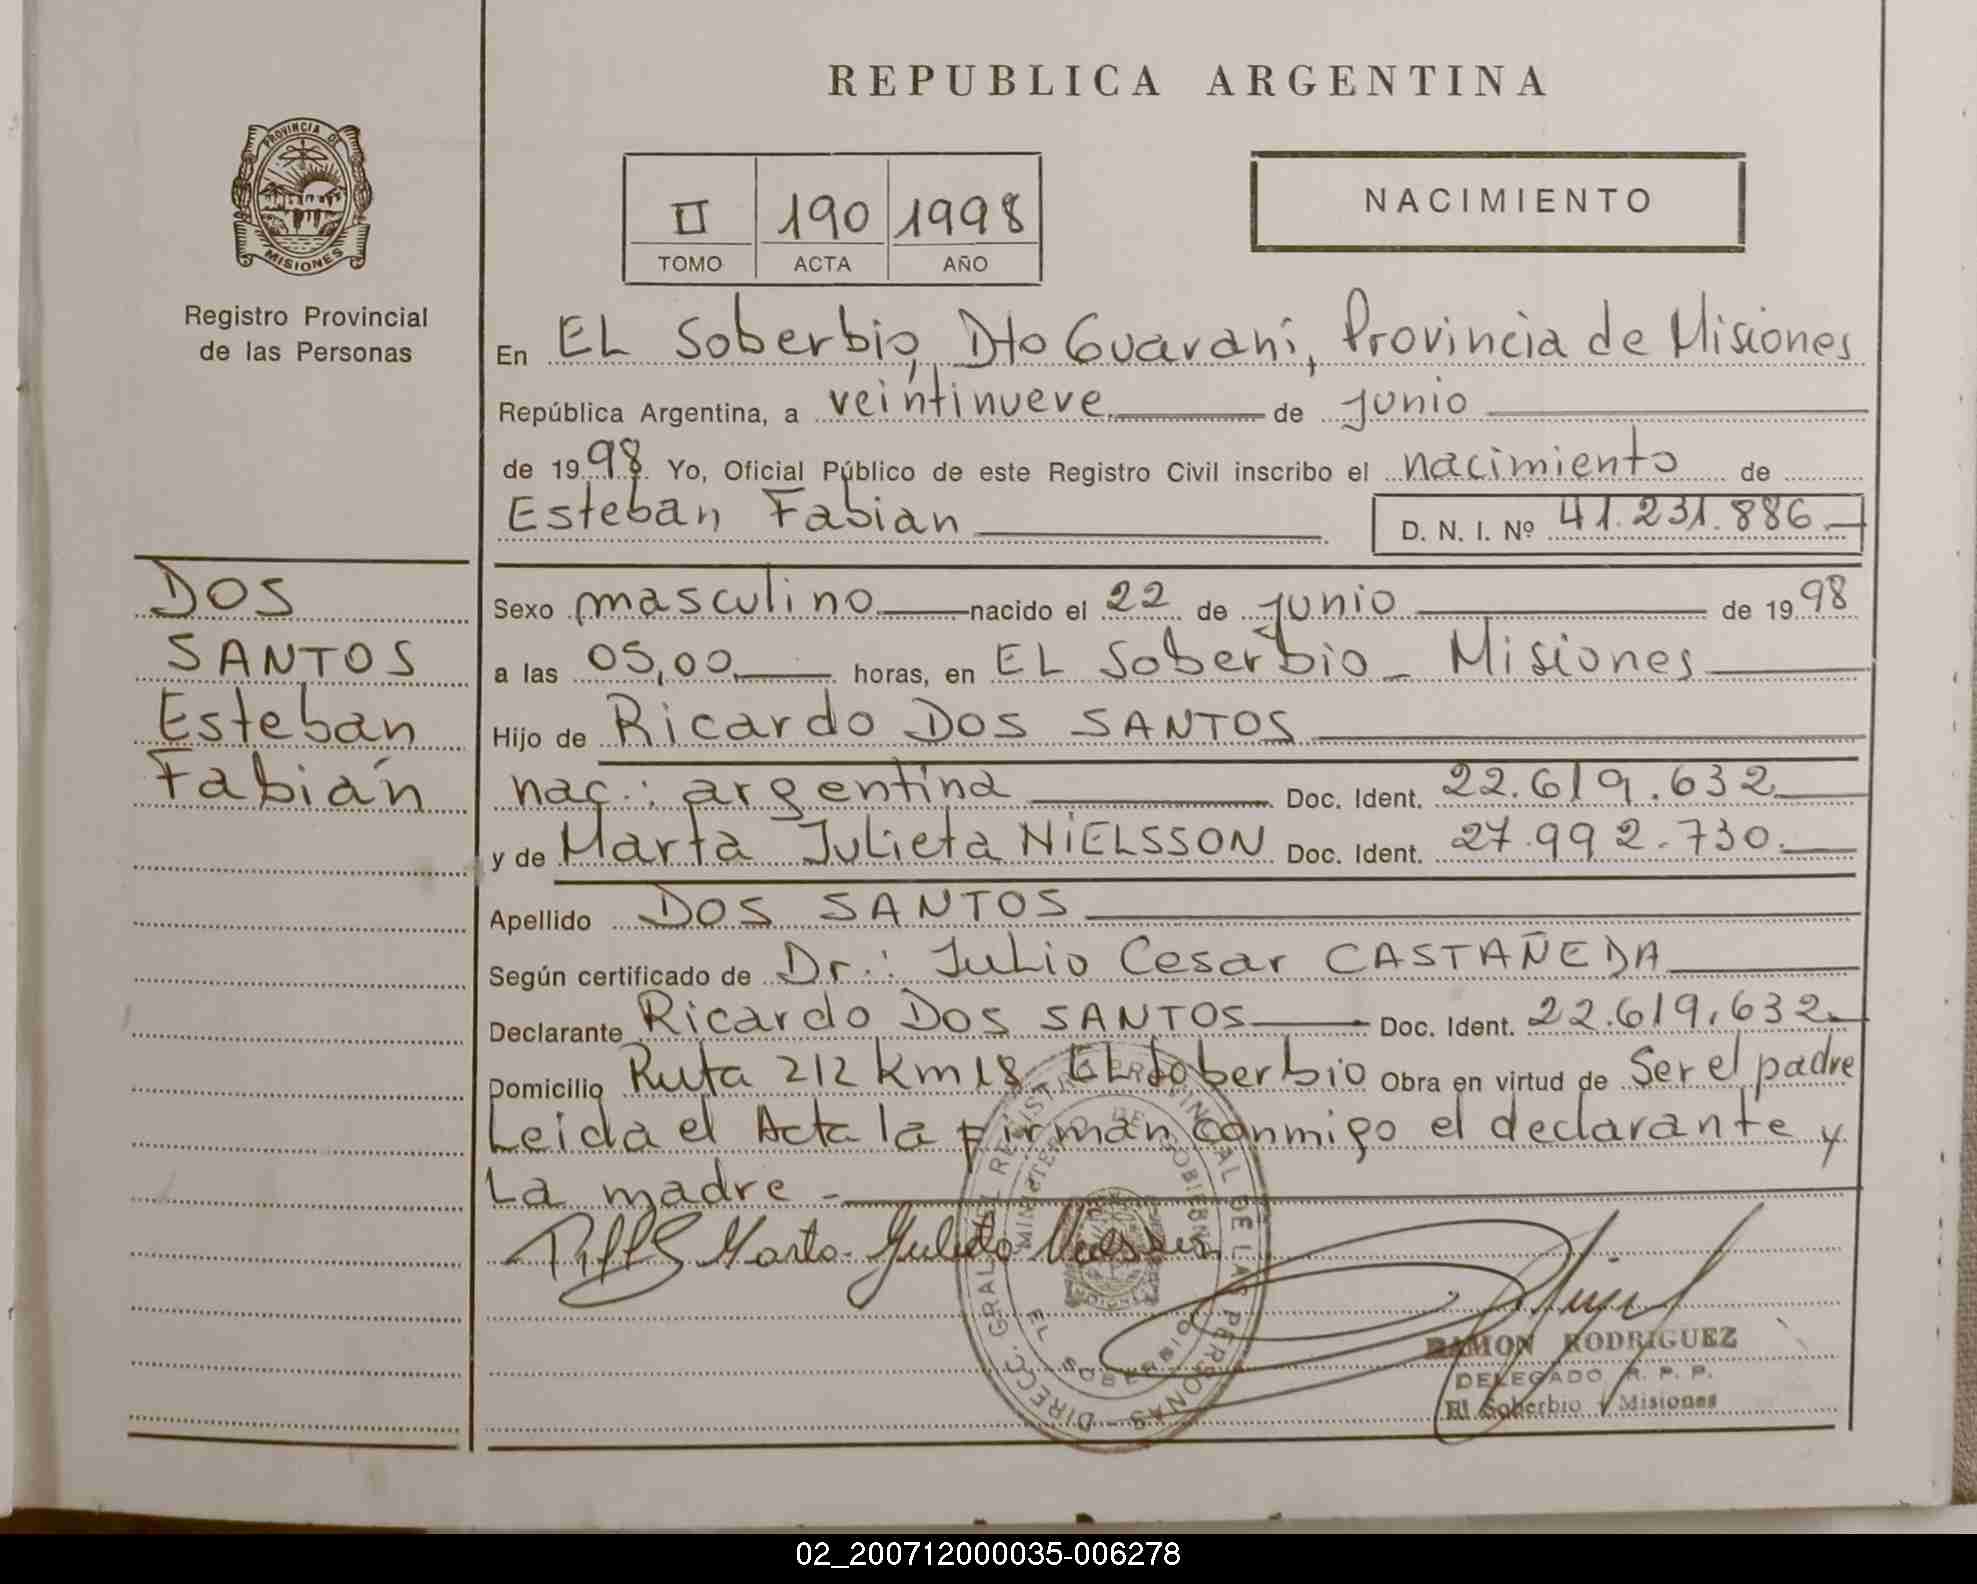 REPUBLICA ARGENTINA
PROVINCIA DE
MISIONES
Registro Provincial
de las Personas
II 190 1998
TOMO ACTA AÑO
NACIMIENTO
En EL Soberbio, Dto Guaraní, Provincia de Misiones
República Argentina, a veintinueve de junio
de 1998 Yo, Oficial Público de este Registro Civil inscribo el nacimiento de
Esteban Fabian D. N. I. Nº 41.231.886.
DOS
SANTOS
Esteban
Fabián
Sexo masculino nacido el 22 de junio de 1998
a las 05,00 horas, en EL Soberbio - Misiones
Hijo de Ricardo DOS SANTOS
nac.: argentina Doc. Ident. 22.619.632
y de Marta Julieta NIELSSON Doc. Ident. 27.992.730.
Apellido DOS SANTOS
Según certificado de Dr.: Julio Cesar CASTAÑEDA
Declarante Ricardo DOS SANTOS Doc. Ident. 22.619.632
Domicilio Ruta 212 km 18 EL Soberbio Obra en virtud de Ser el padre
Leida el Acta la firman conmigo el declarante y
La madre -
Marta Julieta
DIRECC. GRAL. DEL REGISTRO PROVINCIAL DE LAS PERSONAS
MINISTERIO DE GOBIERNO
EL SOBERBIO
RAMON RODRIGUEZ
DELEGADO R. P. P.
El Soberbio - Misiones
02_200712000035-006278